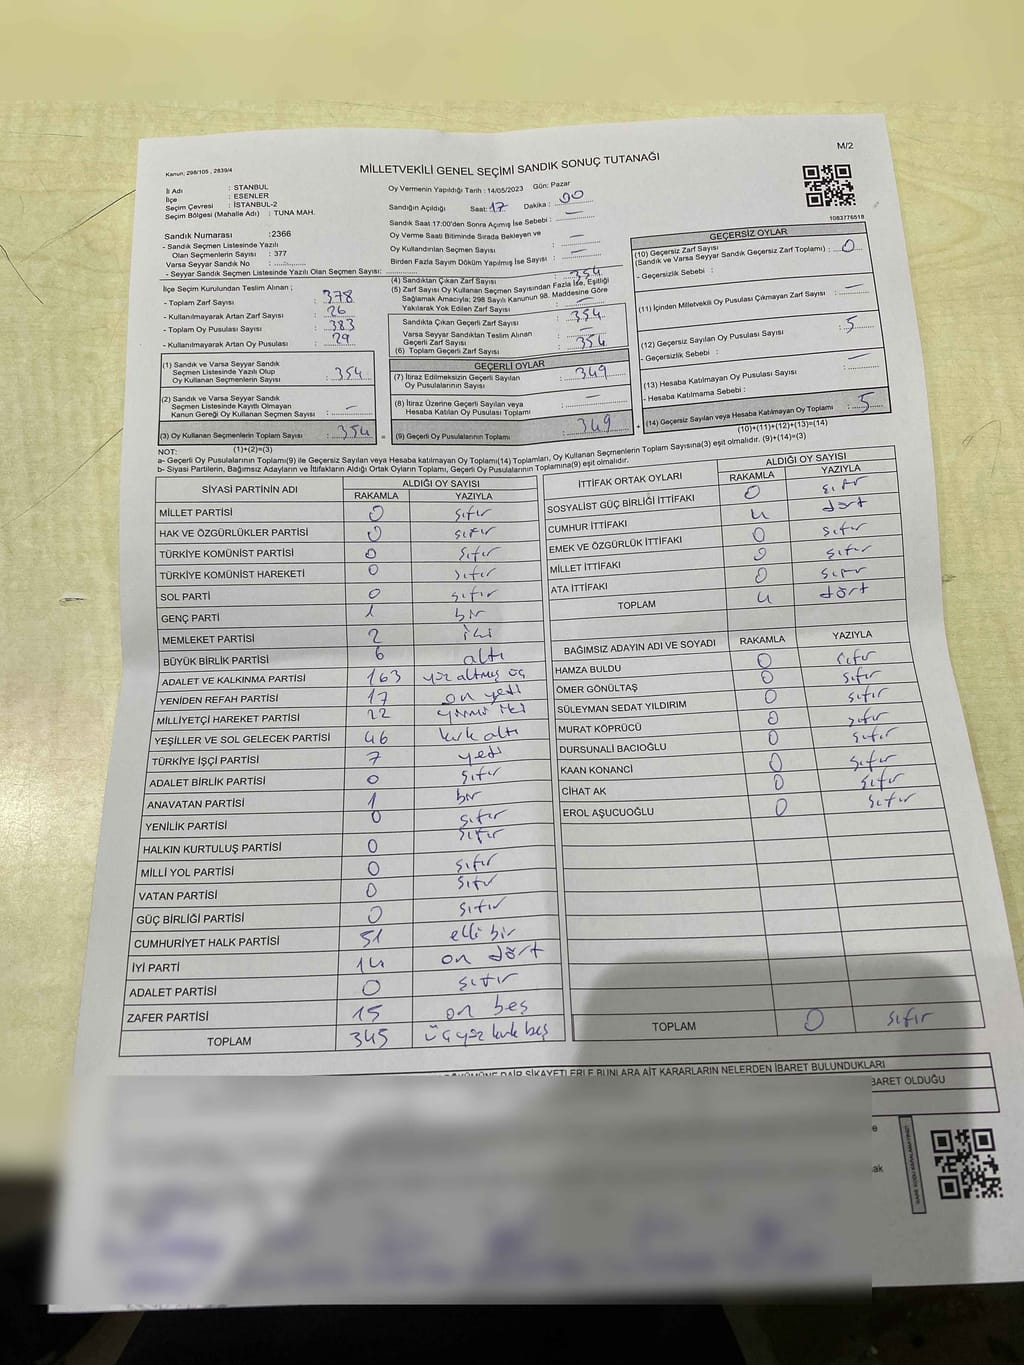 M/2
Kanun: 298/105 , 2839/4
MİLLETVEKİLİ GENEL SEÇİMİ SANDIK SONUÇ TUTANAĞI
1083776518
İl Adı : STANBUL
İlçe : ESENLER
Seçim Çevresi : İSTANBUL-2
Seçim Bölgesi (Mahalle Adı) : TUNA MAH.
Sandık Numarası :2366
- Sandık Seçmen Listesinde Yazılı
Olan Seçmenlerin Sayısı : 377
Varsa Seyyar Sandık No :
- Seyyar Sandık Seçmen Listesinde Yazılı Olan Seçmen Sayısı:
Oy Vermenin Yapıldığı Tarih : 14/05/2023 Gün: Pazar
Sandığın Açıldığı Saat: 17 Dakika : 00
Sandık Saat 17:00'den Sonra Açımış İse Sebebi : —
Oy Verme Saati Bitiminde Sırada Bekleyen ve
Oy Kullandırılan Seçmen Sayısı : —
Birden Fazla Sayım Döküm Yapılmış İse Sayısı : —
İlçe Seçim Kurulundan Teslim Alınan ;
- Toplam Zarf Sayısı : 378
- Kullanılmayarak Artan Zarf Sayısı : 26
- Toplam Oy Pusulası Sayısı : 383
- Kullanılmayarak Artan Oy Pusulası : 29
(1) Sandık ve Varsa Seyyar Sandık
Seçmen Listesinde Yazılı Olup
Oy Kullanan Seçmenlerin Sayısı : 354
(2) Sandık ve Varsa Seyyar Sandık
Seçmen Listesinde Kayıtlı Olmayan
Kanun Gereği Oy Kullanan Seçmen Sayısı : —
(3) Oy Kullanan Seçmenlerin Toplam Sayısı : 354 =
(4) Sandıktan Çıkan Zarf Sayısı : 354
(5) Zarf Sayısı Oy Kullanan Seçmen Sayısından Fazla İse, Eşitliği
Sağlamak Amacıyla; 298 Sayılı Kanunun 98. Maddesine Göre
Yakılarak Yok Edilen Zarf Sayısı : —
Sandıkta Çıkan Geçerli Zarf Sayısı : 354
Varsa Seyyar Sandıktan Teslim Alınan
Geçerli Zarf Sayısı : —
(6) Toplam Geçerli Zarf Sayısı : 354
GEÇERLİ OYLAR
(7) İtiraz Edilmeksizin Geçerli Sayılan
Oy Pusulalarının Sayısı : 349
(8) İtiraz Üzerine Geçerli Sayılan veya
Hesaba Katılan Oy Pusulası Toplamı : —
(9) Geçerli Oy Pusulalarının Toplamı : 349 +
GEÇERSİZ OYLAR
(10) Geçersiz Zarf Sayısı
(Sandık ve Varsa Seyyar Sandık Geçersiz Zarf Toplamı) : 0
- Geçersizlik Sebebi :
(11) İçinden Milletvekili Oy Pusulası Çıkmayan Zarf Sayısı : —
(12) Geçersiz Sayılan Oy Pusulası Sayısı : 5
- Geçersizlik Sebebi :
(13) Hesaba Katılmayan Oy Pusulası Sayısı : —
- Hesaba Katılmama Sebebi :
(14) Geçersiz Sayılan veya Hesaba Katılmayan Oy Toplamı : 5
(10)+(11)+(12)+(13)=(14)
NOT: (1)+(2)=(3)
a- Geçerli Oy Pusulaları Toplamı(9) ile Geçersiz Sayılan veya Hesaba Katılmayan Oy Toplamı(14) Toplamları, Oy Kullanan Seçmenlerin Toplam Sayısına(3) eşit olmalıdır. (9)+(14)=(3)
b- Siyasi Partilerin, Bağımsız Adayların ve İttifakların Aldığı Ortak Oyların Toplamı, Geçerli Oy Pusulalarının Toplamına(9) eşit olmalıdır.
SİYASİ PARTİNİN ADI ALDIĞI OY SAYISI
RAKAMLA YAZIYLA
MİLLET PARTİSİ 0 sıfır
HAK VE ÖZGÜRLÜKLER PARTİSİ 0 sıfır
TÜRKİYE KOMÜNİST PARTİSİ 0 sıfır
TÜRKİYE KOMÜNİST HAREKETİ 0 sıfır
SOL PARTİ 0 sıfır
GENÇ PARTİ 1 bir
MEMLEKET PARTİSİ 2 iki
BÜYÜK BİRLİK PARTİSİ 6 altı
ADALET VE KALKINMA PARTİSİ 163 yüz altmış üç
YENİDEN REFAH PARTİSİ 17 on yedi
MİLLİYETÇİ HAREKET PARTİSİ 22 yirmi iki
YEŞİLLER VE SOL GELECEK PARTİSİ 46 kırk altı
TÜRKİYE İŞÇİ PARTİSİ 7 yedi
ADALET BİRLİK PARTİSİ 0 sıfır
ANAVATAN PARTİSİ 1 bir
YENİLİK PARTİSİ 0 sıfır
HALKIN KURTULUŞ PARTİSİ 0 sıfır
MİLLİ YOL PARTİSİ 0 sıfır
VATAN PARTİSİ 0 sıfır
GÜÇ BİRLİĞİ PARTİSİ 0 sıfır
CUMHURİYET HALK PARTİSİ 51 elli bir
İYİ PARTİ 14 on dört
ADALET PARTİSİ 0 sıfır
ZAFER PARTİSİ 15 on beş
TOPLAM 345 üç yüz kırk beş
İTTİFAK ORTAK OYLARI ALDIĞI OY SAYISI
RAKAMLA YAZIYLA
SOSYALİST GÜÇ BİRLİĞİ İTTİFAKI 0 sıfır
CUMHUR İTTİFAKI 4 dört
EMEK VE ÖZGÜRLÜK İTTİFAKI 0 sıfır
MİLLET İTTİFAKI 0 sıfır
ATA İTTİFAKI 0 sıfır
TOPLAM 4 dört
BAĞIMSIZ ADAYIN ADI VE SOYADI RAKAMLA YAZIYLA
HAMZA BULDU 0 sıfır
ÖMER GÖNÜLTAŞ 0 sıfır
SÜLEYMAN SEDAT YILDIRIM 0 sıfır
MURAT KÖPRÜCÜ 0 sıfır
DURSUNALİ BACIOĞLU 0 sıfır
KAAN KONANCİ 0 sıfır
CİHAT AK 0 sıfır
EROL AŞUCUOĞLU 0 sıfır
TOPLAM 0 sıfır
DAİR ŞİKAYETLERLE BUNLARA AİT KARARLARIN NELERDEN İBARET BULUNDUKLARI
BARET OLDUĞU